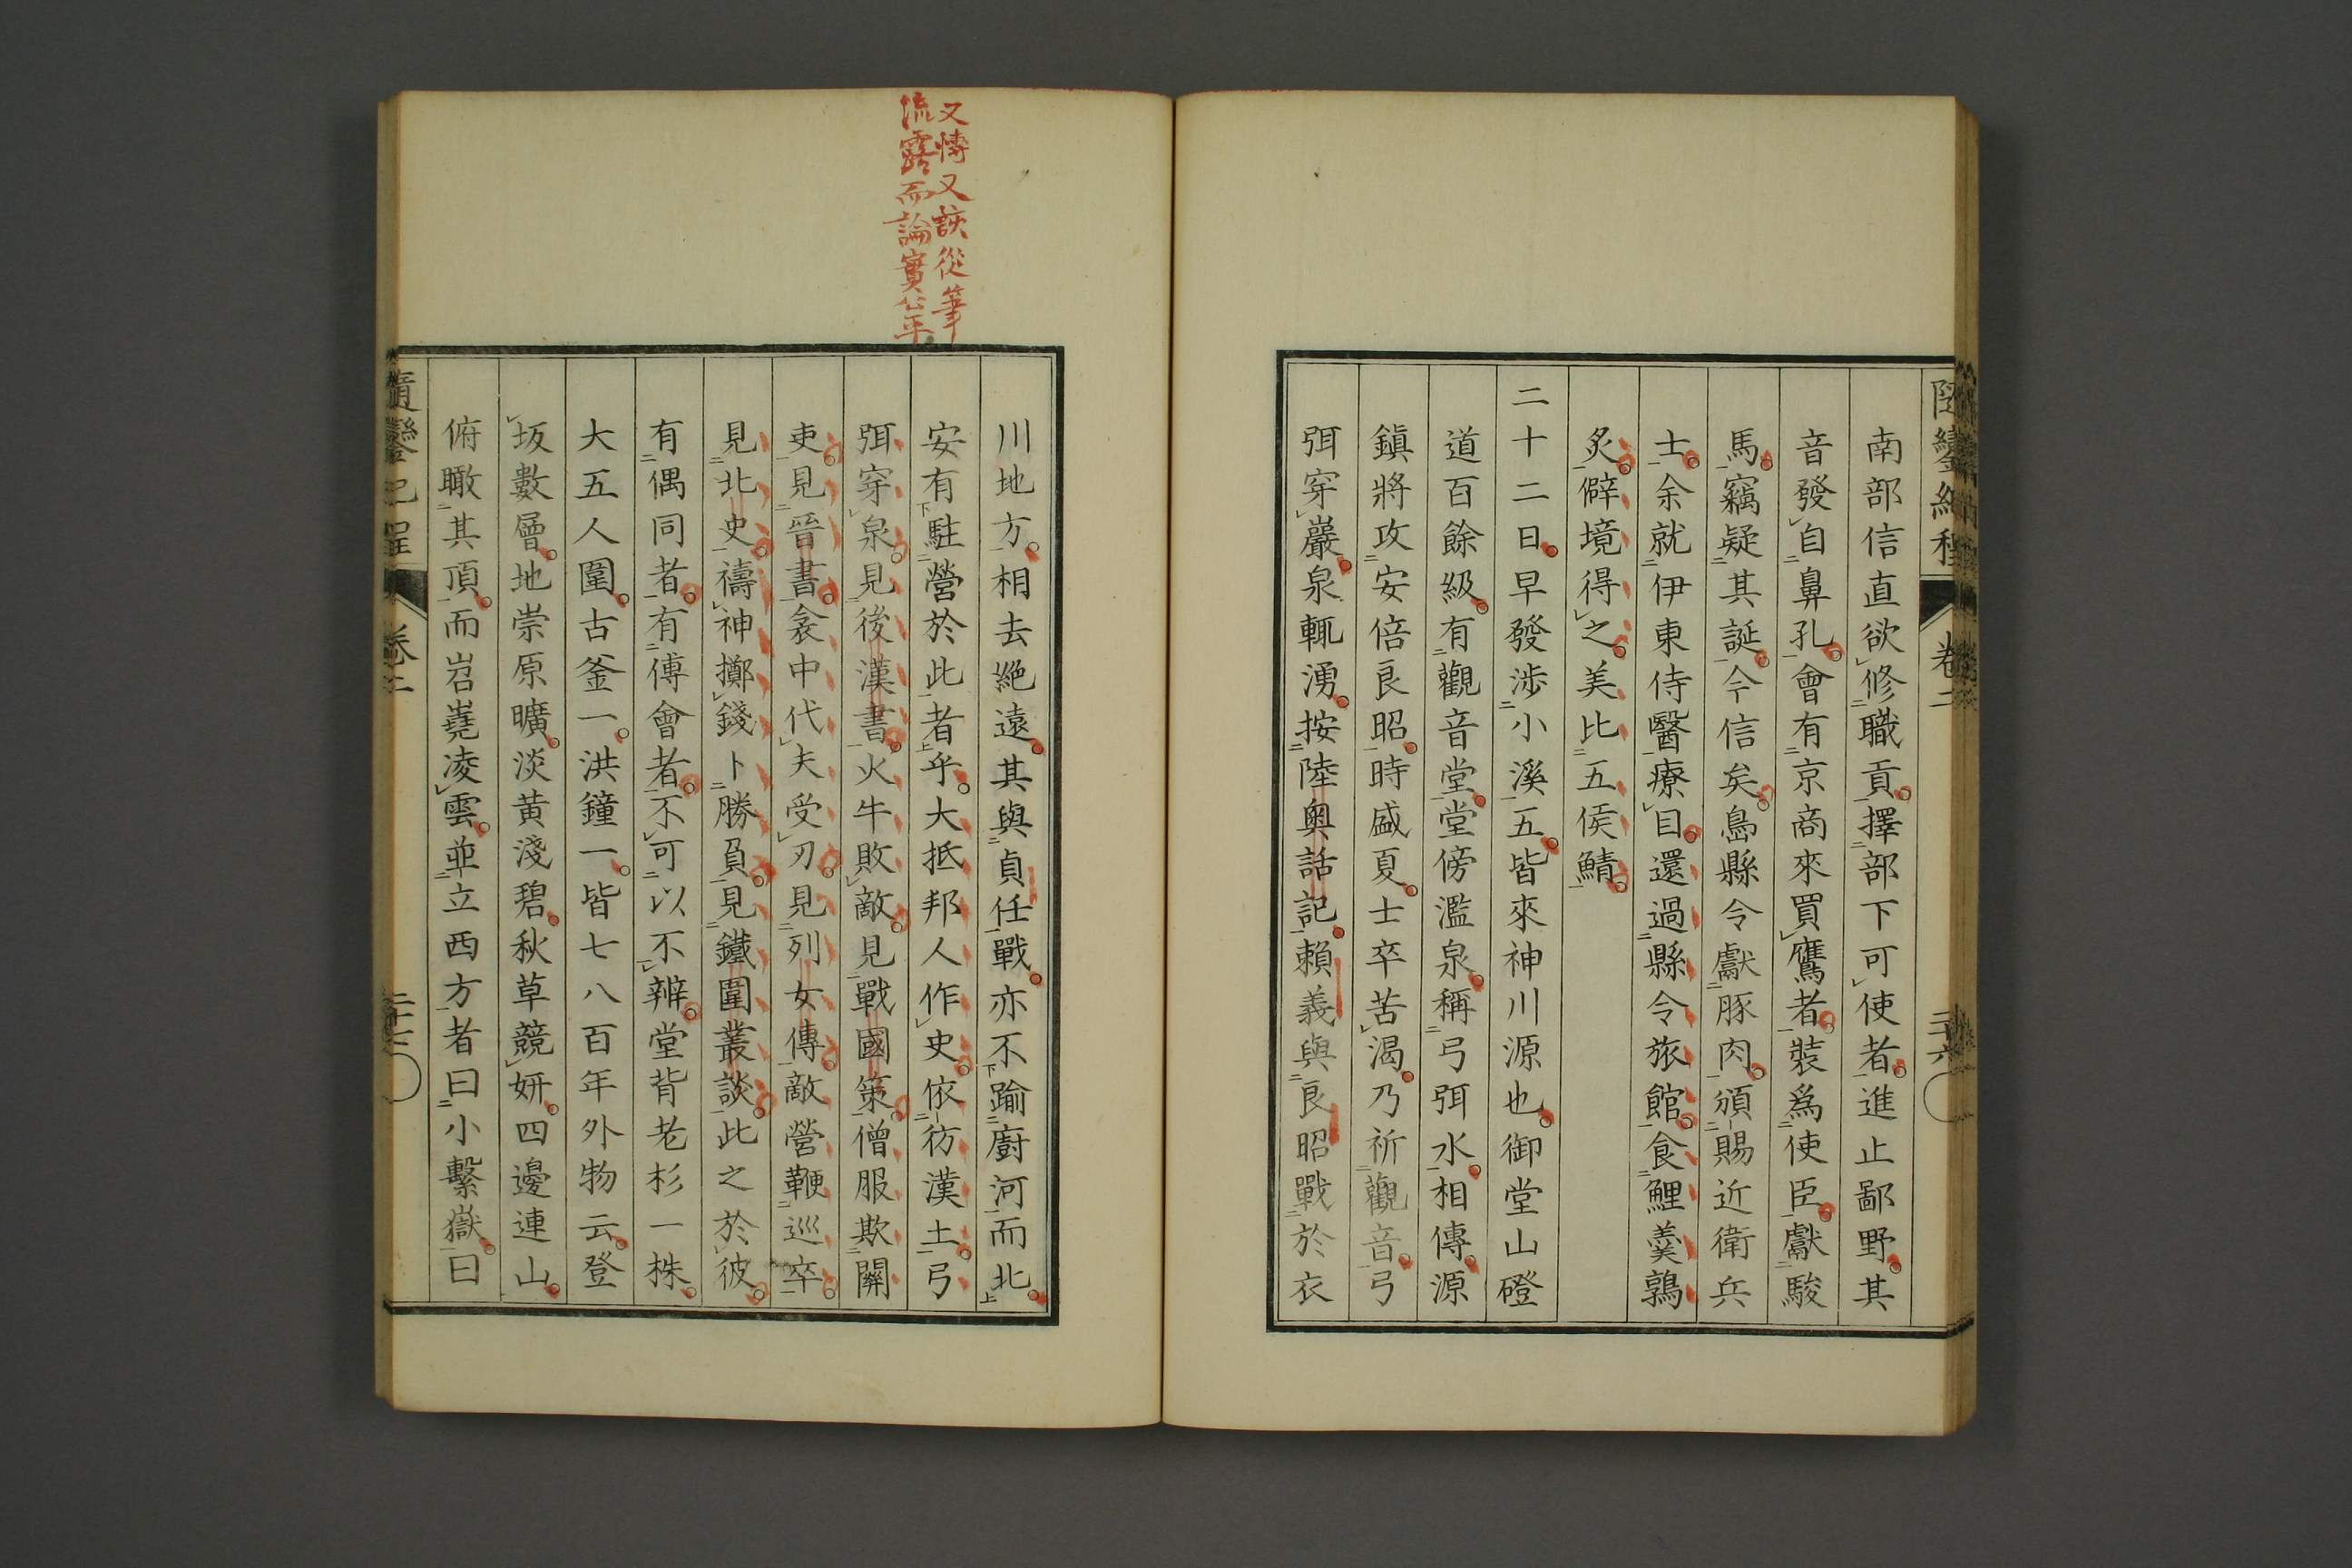 隨鑾紀程 卷二 二十六
南部信直欲修職貢。擇部下可使者。進止鄙野。其
音發自鼻孔。會有京商來買鷹者。裝爲使臣。獻駿
馬。竊疑其誕。今信矣。島縣令獻豚肉。頒賜近衛兵
士。余就伊東侍醫療目。還過縣令旅館。食鯉羹鶉
炙。僻境得之。美比五侯鯖。
二十二日。早發涉小溪五。皆來神川源也。御堂山磴
道百餘級。有觀音堂。堂傍濫泉。稱弓弭水。相傳。源
鎮將攻安倍良昭。時盛夏。士卒苦渴。乃祈觀音。弓
弭穿巖。泉輒湧。按陸奧話記。賴義與良昭戰於衣
又慱又詼從筆
流露而論實公平
川地方。相去絕遠。其與貞任戰。亦不踰廚河而北。
安有駐營於此者乎。大抵邦人作史。依彷漢土。弓
弭穿泉。見後漢書。火牛敗敵。見戰國策。僧服欺關
吏。見晉書。衾中代夫受刃。見列女傳。敵營鞭巡卒。
見北史。禱神擲錢卜勝負。見鐵圍叢談。此之於彼。
有偶同者。有傅會者。不可以不辨。堂背老杉一株。
大五人圍。古釜一。洪鐘一。皆七八百年外物云。登
坂數層。地崇原曠。淡黃淺碧。秋草競妍。四邊連山。
俯瞰其頂。而岧嶤凌雲。並立西方者曰小繫嶽。曰
隨鑾紀程 卷二